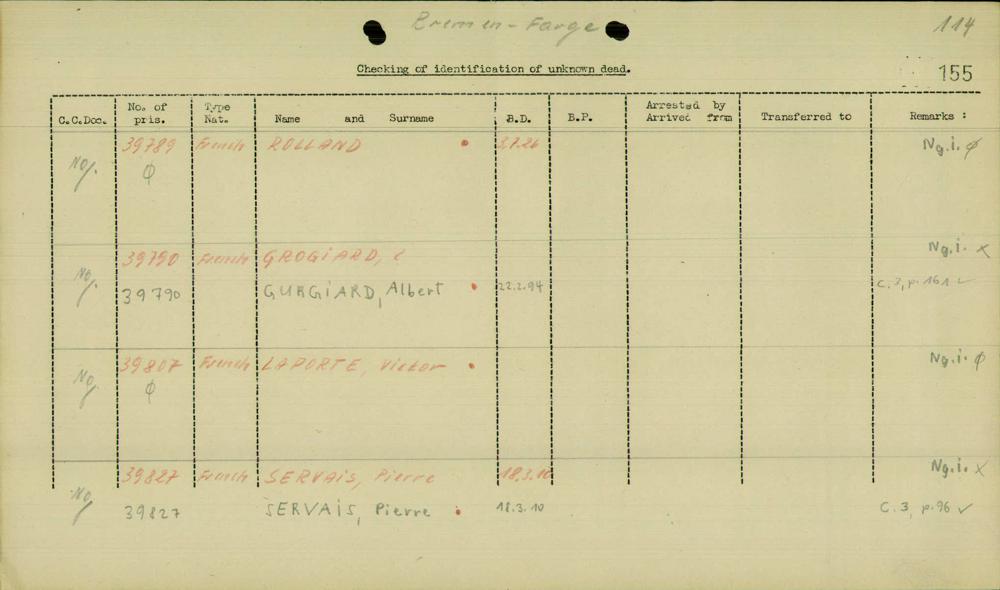 Bremen-Farge
114
Checking of identification of unknown dead.
155
C.C.Doc. No. of pris. Type Nat. Name and Surname B.D. B.P. Arrested by Arrived from Transferred to Remarks :
No. 39789 French ROLLAND 3.7.26 Ng.i. ϕ
ϕ
39790 French GROGIARD, Ng.i. x
No. 39790 GURGIARD, Albert 22.2.94 C. 3, p. 161 ✓
No. 39807 French LAPORTE, Victor Ng.i. ϕ
ϕ
39827 French SERVAIS, Pierre 18.3.10 Ng.i. x
No. 39827 SERVAIS, Pierre 18.3.10 C. 3, p. 96 ✓